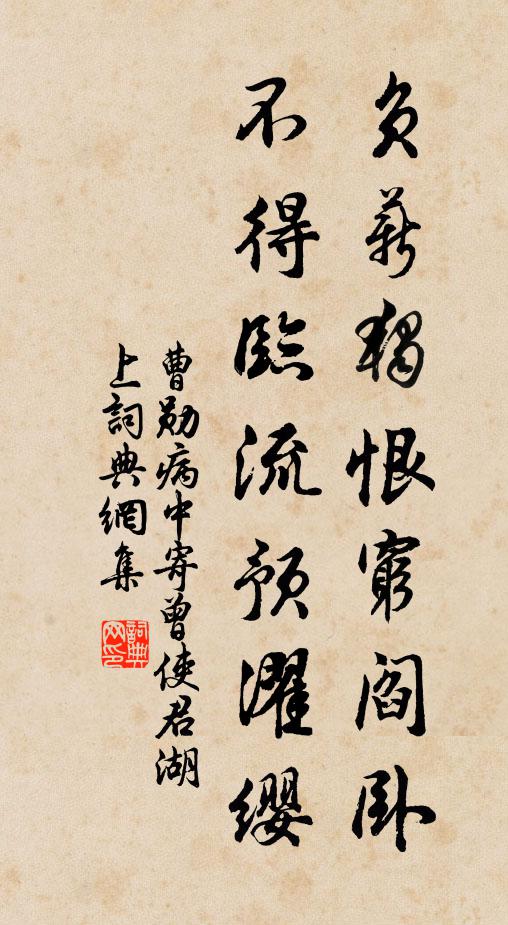 负薪独恨穷阎卧
不得臨流预濯缨
曹勋病中寄曾使君湖
上詞典網集
詞典网印